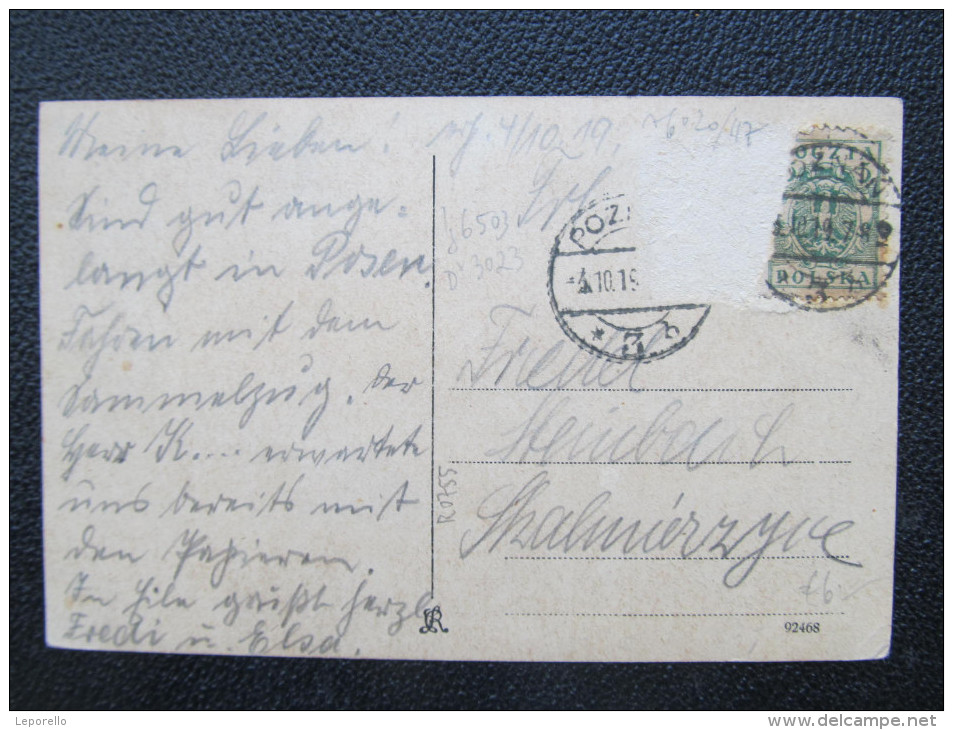 Meine Lieben!
Sind gut ange-
langt in Posen.
Fahren mit dem
Sammelzug. Der
Herr K.... erwartete
uns bereits mit
den Papieren.
In Eile grüßt herzl.
Fredi u. Elsa.
4/10 19.
6503
3023
R0755
POZ
4.10.19
* 3 b
POCZTA
POLSKA
Steinbach
Skalmierzyce
92468
Leporello
www.delcampe.net